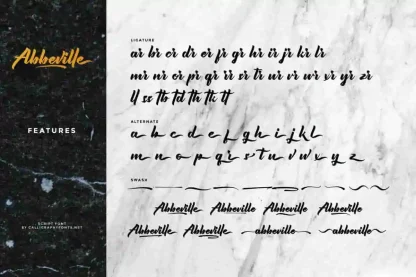 Abbeville
FEATURES
SCRIPT FONT
BY CALLIGRAPHYFONTS.NET
LIGATURE
ar br cr dr er fr gr hr ir jr kr lr
mr nr or pr qr rr sr tr ur vr wr xr yr zr
ll ss tb td th tk tt
ALTERNATE
a b c d e f g h i j k l
m n o p q r s t u v w x y z
SWASH
Abbeville Abbeville Abbeville Abbeville
Abbeville Abbeville abbeville abbeville